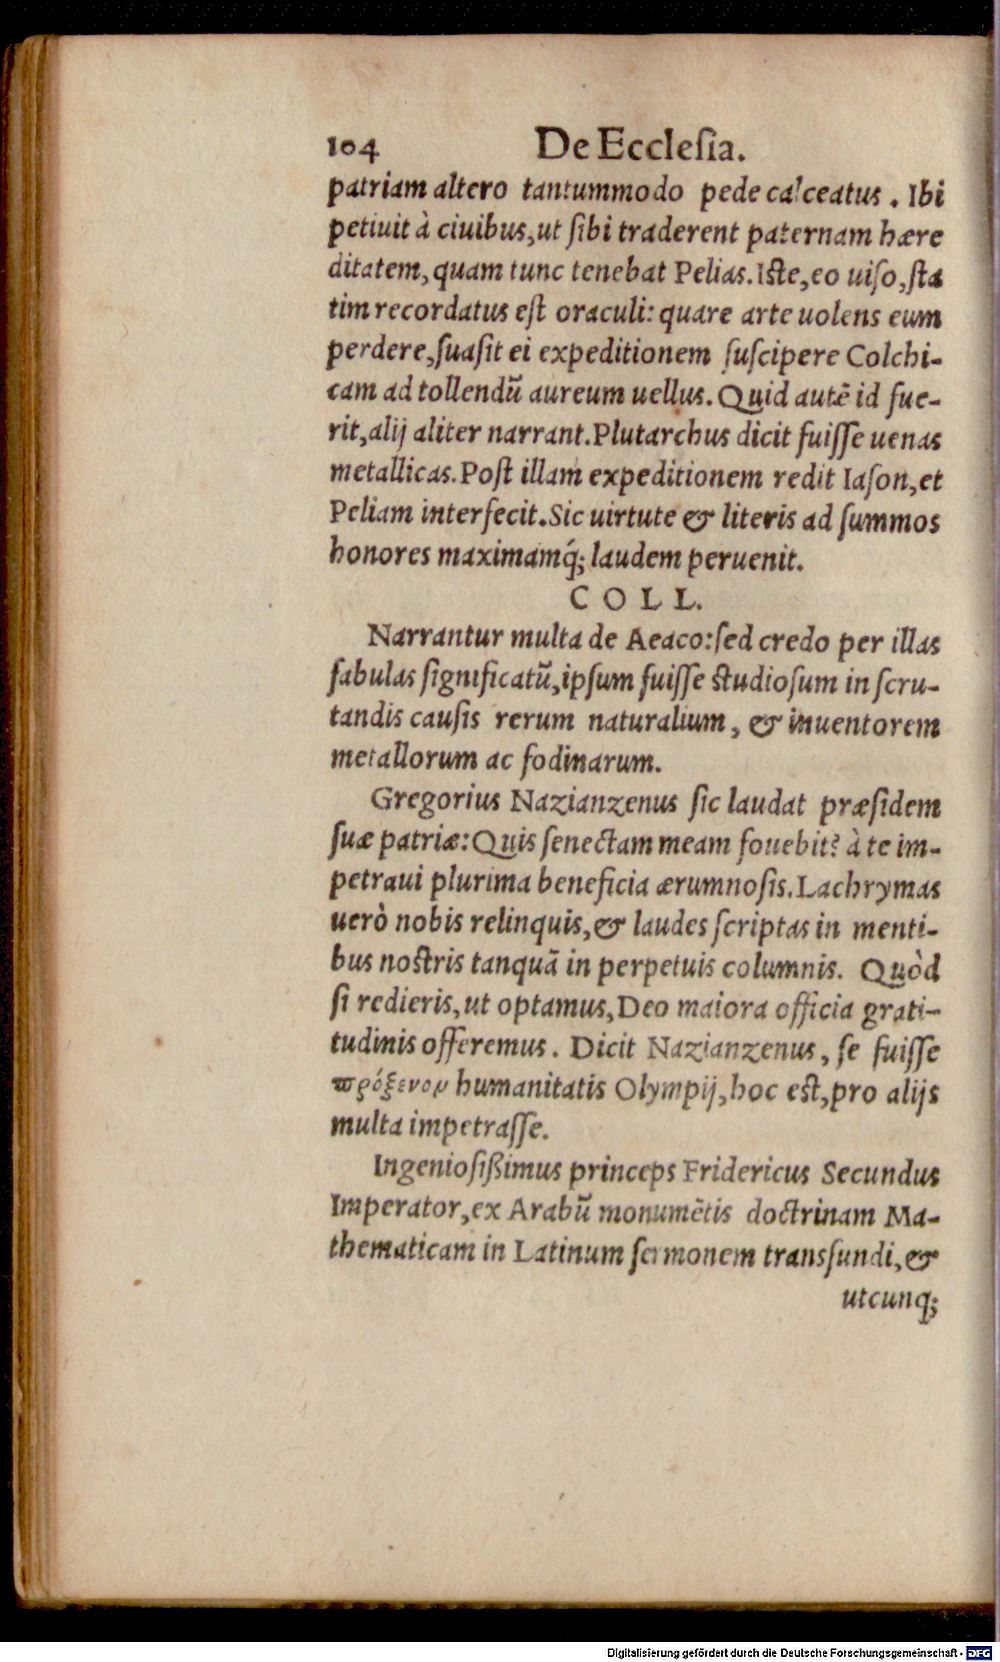 104 De Ecclesia.
patriam altero tantummodo pede calceatus. Ibi
petiuit à ciuibus, ut sibi traderent paternam hære
ditatem, quam tunc tenebat Pelias. Iste, eo uiso, sta
tim recordatus est oraculi: quare arte uolens eum
perdere, suasit ei expeditionem suscipere Colchi-
cam ad tollendũ aureum uellus. Quid autẽ id fue-
rit, alij aliter narrant. Plutarchus dicit fuisse uenas
metallicas. Post illam expeditionem redit Iason, et
Peliam interfecit. Sic uirtute & literis ad summos
honores maximamq́; laudem peruenit.
COLL.
Narrantur multa de Aeaco: sed credo per illas
fabulas significatũ, ipsum fuisse studiosum in scru-
tandis causis rerum naturalium, & inuentorem
metallorum ac fodinarum.
Gregorius Nazianzenus sic laudat præsidem
suæ patriæ: Quis senectam meam fouebit? à te im-
petraui plurima beneficia ærumnosis. Lachrymas
uerò nobis relinquis, & laudes scriptas in menti-
bus nostris tanquã in perpetuis columnis. Quòd
si redieris, ut optamus, Deo maiora officia grati-
tudinis offeremus. Dicit Nazianzenus, se fuisse
πρόξενον humanitatis Olympij, hoc est, pro alijs
multa impetrasse.
Ingeniosißimus princeps Fridericus Secundus
Imperator, ex Arabũ monumẽtis doctrinam Ma-
thematicam in Latinum sermonem transfundi, &
utcunq;
Digitalisierung gefördert durch die Deutsche Forschungsgemeinschaft - DFG